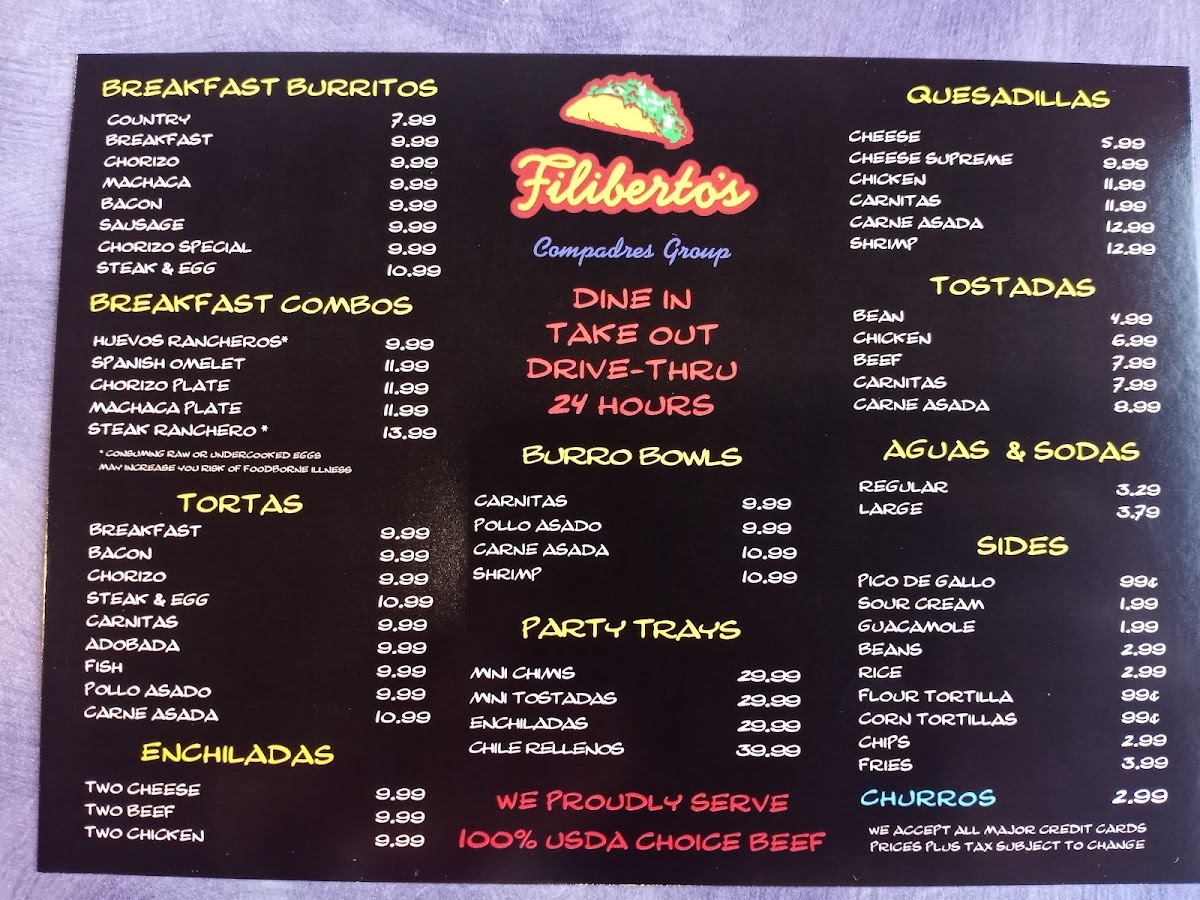 BREAKFAST BURRITOS
COUNTRY 7.99
BREAKFAST 9.99
CHORIZO 9.99
MACHACA 9.99
BACON 9.99
SAUSAGE 9.99
CHORIZO SPECIAL 9.99
STEAK & EGG 10.99
BREAKFAST COMBOS
HUEVOS RANCHEROS* 9.99
SPANISH OMELET 11.99
CHORIZO PLATE 11.99
MACHACA PLATE 11.99
STEAK RANCHERO * 13.99
* CONSUMING RAW OR UNDERCOOKED EGGS
MAY INCREASE YOU RISK OF FOODBORNE ILLNESS
TORTAS
BREAKFAST 9.99
BACON 9.99
CHORIZO 9.99
STEAK & EGG 10.99
CARNITAS 9.99
ADOBADA 9.99
FISH 9.99
POLLO ASADO 9.99
CARNE ASADA 10.99
ENCHILADAS
TWO CHEESE 9.99
TWO BEEF 9.99
TWO CHICKEN 9.99
Filiberto's
Compadres Group
DINE IN
TAKE OUT
DRIVE-THRU
24 HOURS
BURRO BOWLS
CARNITAS 9.99
POLLO ASADO 9.99
CARNE ASADA 10.99
SHRIMP 10.99
PARTY TRAYS
MINI CHIMIS 29.99
MINI TOSTADAS 29.99
ENCHILADAS 29.99
CHILE RELLENOS 39.99
WE PROUDLY SERVE
100% USDA CHOICE BEEF
QUESADILLAS
CHEESE 5.99
CHEESE SUPREME 9.99
CHICKEN 11.99
CARNITAS 11.99
CARNE ASADA 12.99
SHRIMP 12.99
TOSTADAS
BEAN 4.99
CHICKEN 6.99
BEEF 7.99
CARNITAS 7.99
CARNE ASADA 8.99
AGUAS & SODAS
REGULAR 3.29
LARGE 3.79
SIDES
PICO DE GALLO 99¢
SOUR CREAM 1.99
GUACAMOLE 1.99
BEANS 2.99
RICE 2.99
FLOUR TORTILLA 99¢
CORN TORTILLAS 99¢
CHIPS 2.99
FRIES 3.99
CHURROS 2.99
WE ACCEPT ALL MAJOR CREDIT CARDS
PRICES PLUS TAX SUBJECT TO CHANGE